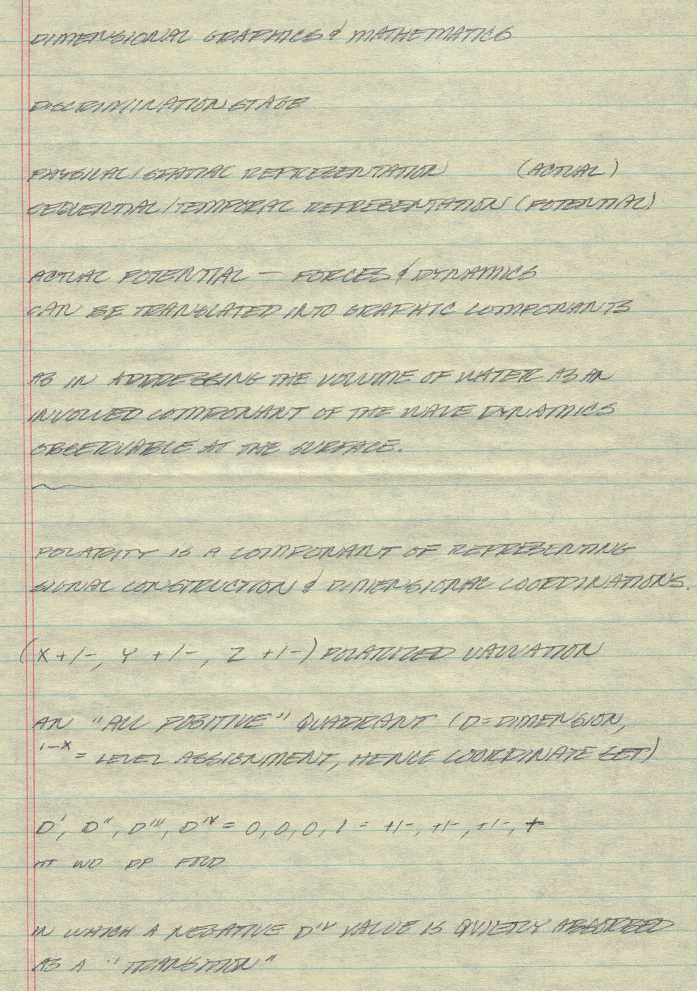 DIMENSIONAL GRAPHICS & MATHEMATICS
DISCRIMINATION STAGE
PHYSICAL/SPATIAL REPRESENTATION (ACTUAL)
SEQUENTIAL/TEMPORAL REPRESENTATION (POTENTIAL)
ACTUAL POTENTIAL — FORCES & DYNAMICS
CAN BE TRANSLATED INTO GRAPHIC COMPONANTS
AS IN ADDRESSING THE VOLUME OF WATER AS AN
INVOLVED COMPONANT OF THE WAVE DYNAMICS
OBSERVABLE AT THE SURFACE.
POLARITY IS A COMPONANT OF REPRESENTING
SIGNAL CONSTRUCTION & DIMENSIONAL COORDINATIONS.
(X +/-, Y +/-, Z +/-) POLARIZED VALUATION
AN "ALL POSITIVE" QUADRANT (D = DIMENSION,
1-X = LEVEL ASSIGNMENT, HENCE COORDINATE SET)
D', D", D''', D'V = 0, 0, 0, 1 = +/-, +/-, +/-, +
HT WD DP
IN WHICH A NEGATIVE D'V VALUE IS QUIETLY ABSORBED
AS A "TRANSITION"